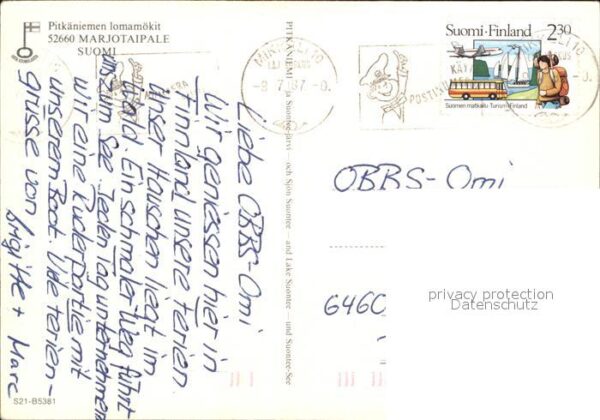 Pitkäniemen lomamökit
52660 MARJOTAIPALE
SUOMI
Liebe OBBS-Omi
Wir geniessen hier in
Finnland unsere Ferien.
Unser Häuschen liegt im
Wald. Ein schmaler Weg führt
uns zum See. Jeden Tag unternehmen
wir eine Ruderpartie mit
unserem Boot. Viele Ferien-
grüsse von
Brigitte + Marc
S21-B5381
PITKÄNIEMI ja Suontee-järvi — och Sjön Suontee — and Lake Suontee — und Suontee-See
MIKKELI 10
-8.7.87-0.
Suomi·Finland 2,30
Suomen matkailu·Turism i Finland
OBBS-Omi
privacy protection
Datenschutz